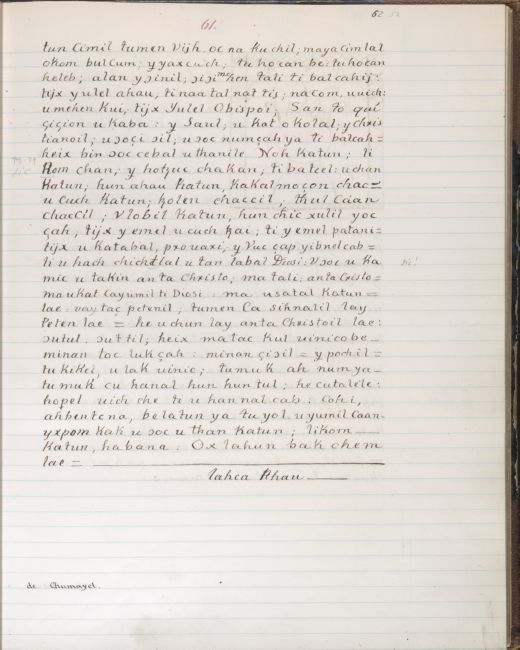 62
61.
tun Cimil tumen Vijh. oc na Kuchil; maya Cim lal
okom bul cum; y yax cach, tu ho can be: tu ho can
heleb; alan y ɔinil; tali ti bal cahij:
tijx y ulel ahau, ti naa tal nat tis; na com, u uich:
u mehen Kui, tijx Yulel Obispoi; San to qui
giçion u kaba: y Saul; u kat okolal; y chris
tianoil; u ɔoçi ɔil, u ɔoc num çah ya ti balcah=
heix bin ɔoc cebal uthanile Noh Katun; li
Hom chan, y hotzuc chakan; ti bateel: uchan
Katun, hun ahau Katun, Kakal moçon chac=
u Cuch Katun; Kolen chaccil, thul Caan
chaccil; Vlobil Katun, hun chic xulil yoc
çah, tijx y emel u cuch; ti y emel patani=
tijx u katabal, prouaxi, y Vuc çap yibnel cab=
ti u hach chichtlal u tan tabal Diosi: Vɔoc u Ka
mic u takin anta Christo; ma tali; anta Cristo=
ma u kat Cayumil ti Diosi: ma usatal Katun=
lae. vay tac petenil; tumen Ca sihnalil lay
Peten lae = he uchun lay anta Christoil lae:
ɔutul. ɔuttil; heix matac Kul uinicobe_
minan toc lukçah: minan çiɔil = y pochil=
tu Kikel, u lak uinic; tumuk ah num ya_
tu muk cu hanal hun hun tul; he cutalele:
hopel uich che ti u han nal cab: Cohi,
ah bentena, belatun ya tu yol u yumil Caan_
yxpom Kak u ɔoc u than Katun; likom
Katun, habana: Ox lahun bak chem
lae =
lahca Ahau
de Chumayel.